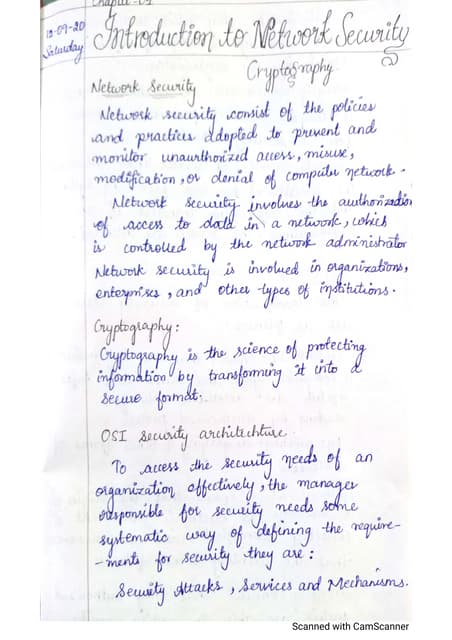 Chapter-01
12-09-20
Saturday
Introduction to Network Security
Cryptography
Network Security
Network security consist of the policies
and practices adopted to prevent and
monitor unauthorized access, misuse,
modification, or denial of computer network.
Network security involves the authorization
of access to data in a network, which
is controlled by the network administrator
Network security is involved in organizations,
enterprises, and other types of institutions.
Cryptography:
Cryptography is the science of protecting
information by transforming it into a
secure format.
OSI security architechture.
To access the security needs of an
organization effectively, the manager
responsible for security needs some
systematic way of defining the require-
-ments for security they are:
Security Attacks, Services and Mechanisms.
Scanned with CamScanner